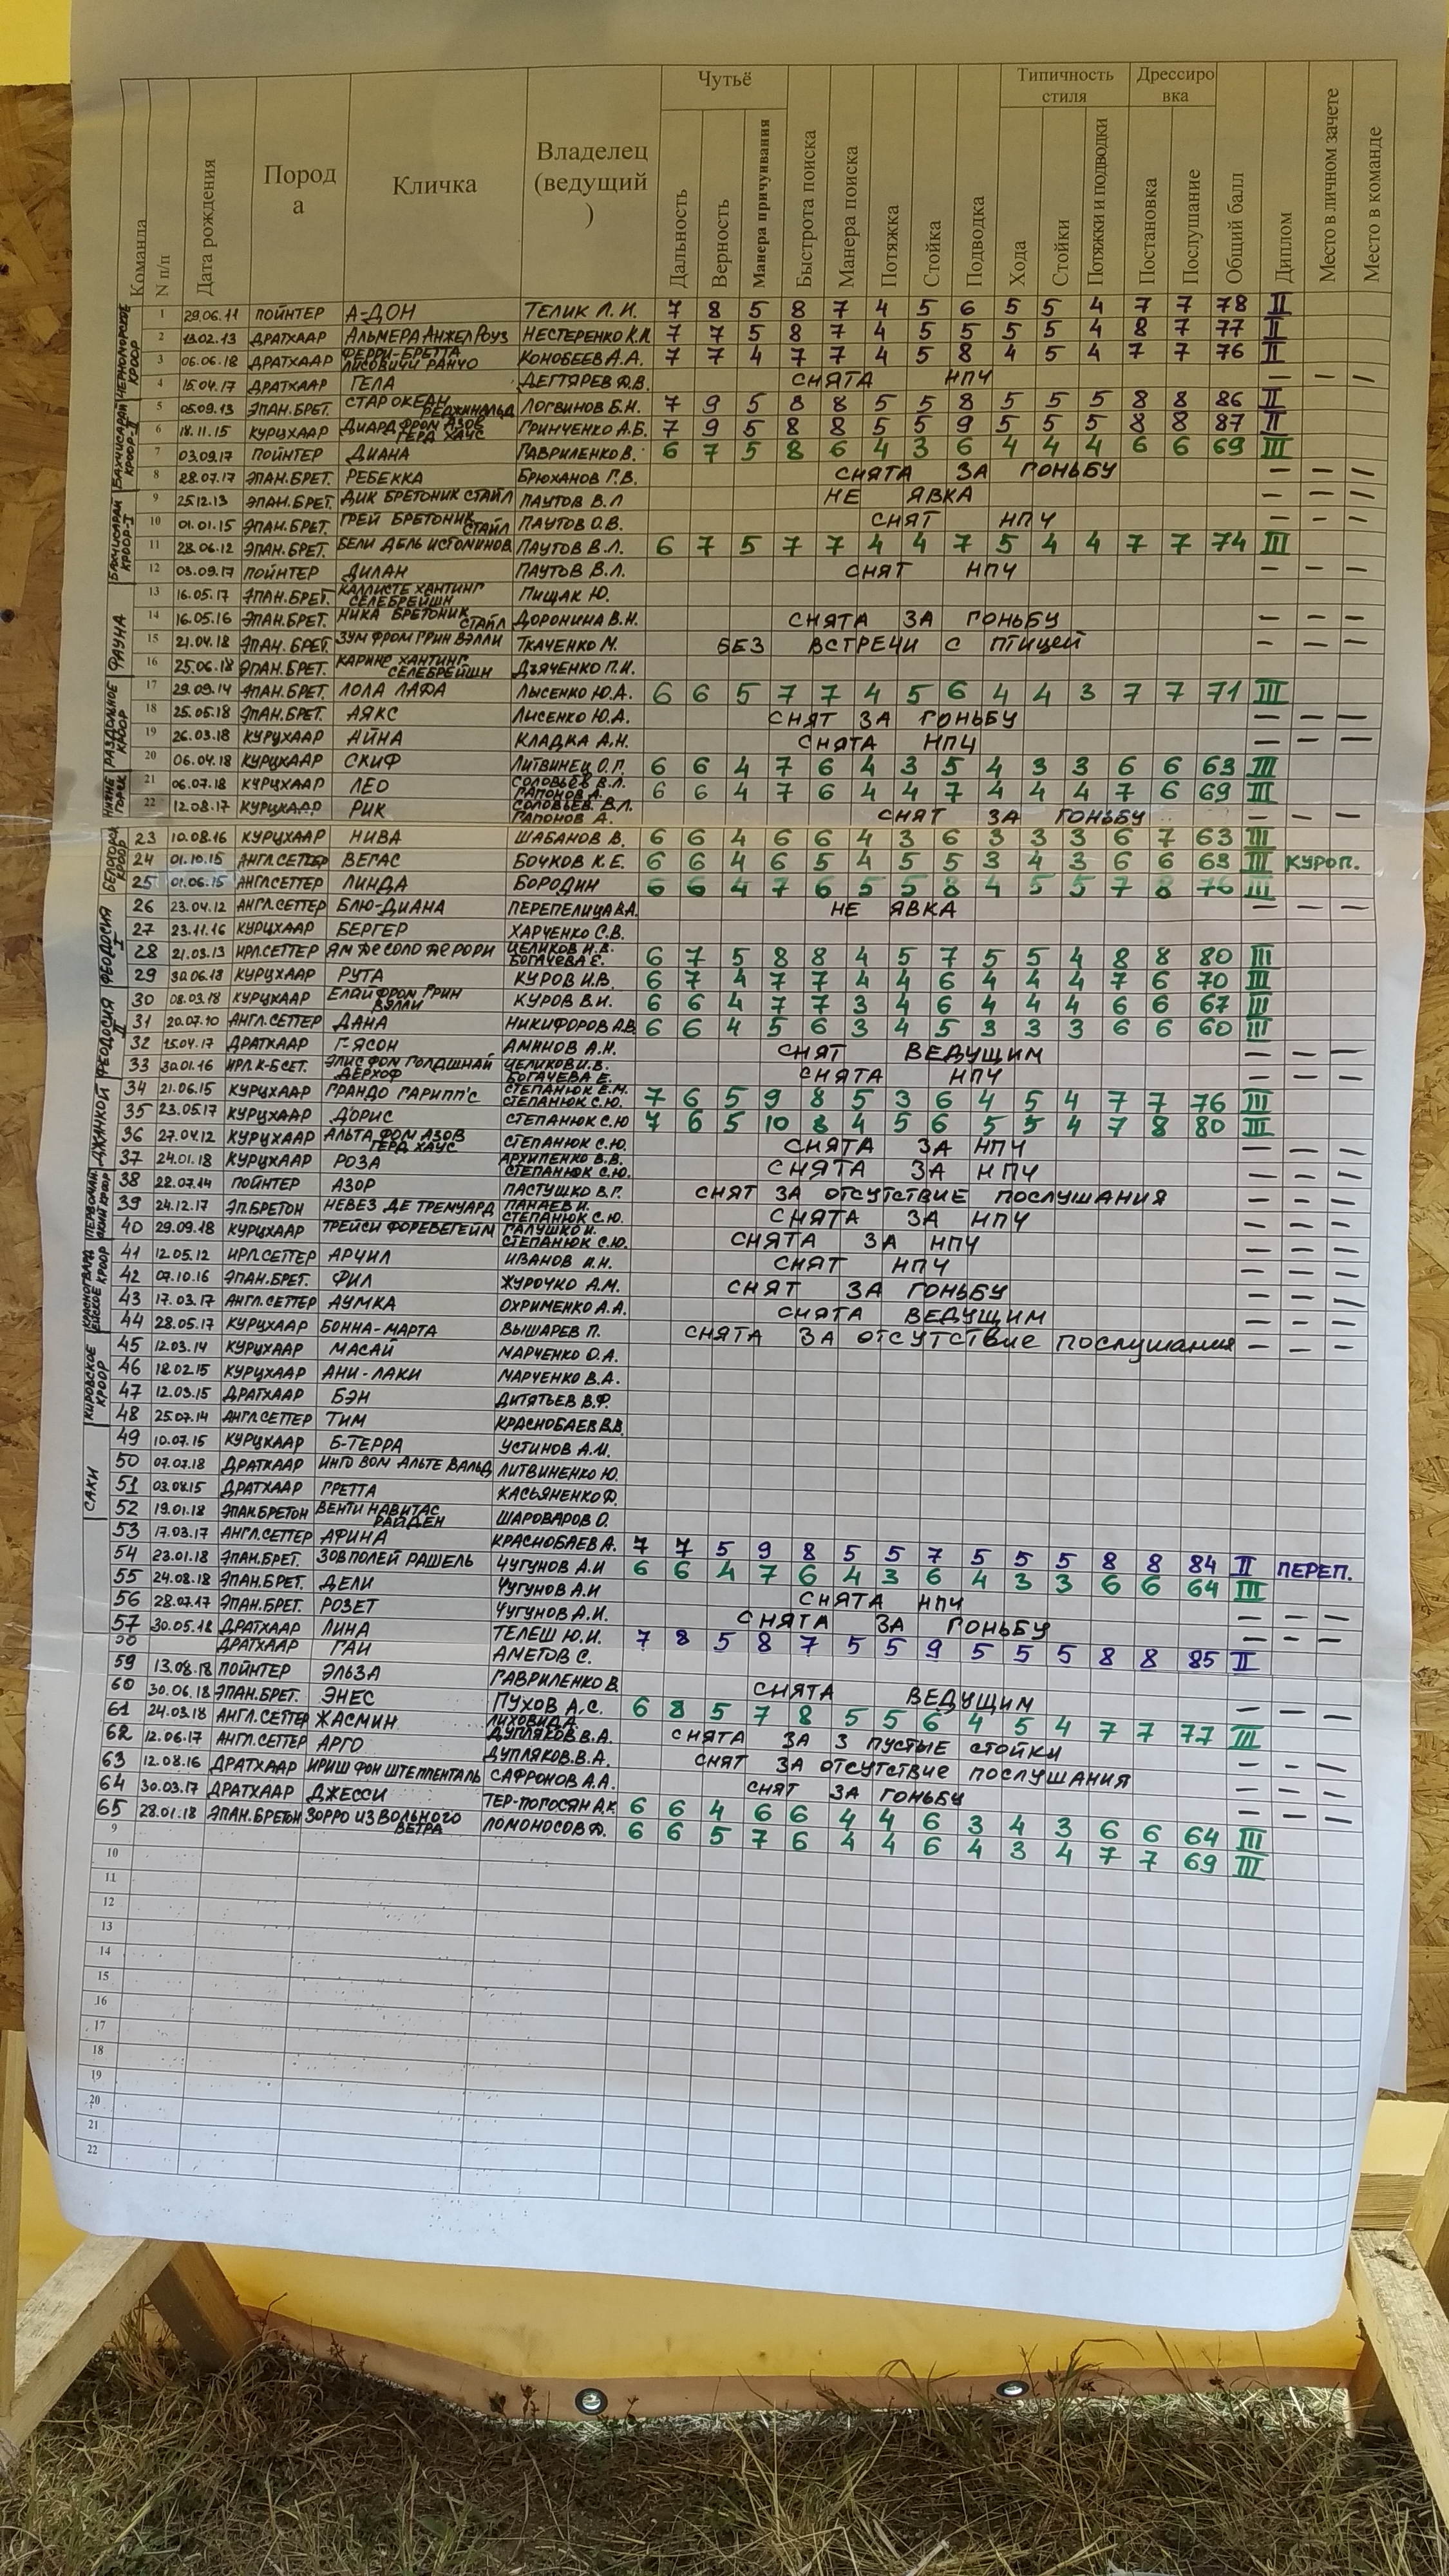 Команда N п/п Дата рождения Пород а Кличка Владелец (ведущий ) Чутьё Дальность Верность Манера причуивания Быстрота поиска Манера поиска Потяжка Стойка Подводка Типичность стиля Хода Стойки Потяжки и подводки Дрессиро вка Постановка Послушание Общий балл Диплом Место в личном зачете Место в команде
ЧЕРНОМОРСКОЕ КРООР
1 29.06.11 ПОЙНТЕР А-ДОН ТЕЛИК Л.И. 7 8 5 8 7 4 5 6 5 5 4 7 7 78 II
2 13.02.13 ДРАТХААР АЛЬМЕРА АНЖЕЛ РОУЗ НЕСТЕРЕНКО К.Н. 7 7 5 8 7 4 5 5 5 5 4 8 7 77 II
3 06.06.18 ДРАТХААР ФЕРРИ-БРЕТТА ЛИСОВИЧИ РАНЧО КОНОБЕЕВ А.А. 7 7 4 7 7 4 5 8 4 5 4 7 7 76 II
4 15.04.17 ДРАТХААР ГЕЛА ДЕГТЯРЕВ Д.В. СНЯТА НПЧ — — —
БАХЧИСАРАЙ КРООР-II
5 05.09.13 ЭПАН.БРЕТ. СТАР ОКЕАН РЕДЖИНАЛЬД ЛОГВИНОВ Б.Н. 7 9 5 8 8 5 5 8 5 5 5 8 8 86 II
6 18.11.15 КУРЦХААР ДИАРД ФРОМ АЗОВ ГЕРД ХАУС ГРИНЧЕНКО А.Б. 7 9 5 8 8 5 5 9 5 5 5 8 8 87 II
7 03.09.17 ПОЙНТЕР ДИАНА ГАВРИЛЕНКО В. 6 7 5 8 6 4 3 6 4 4 4 6 6 69 III
8 28.07.17 ЭПАН.БРЕТ. РЕБЕККА БРЮХАНОВ Г.В. СНЯТА ЗА ГОНЬБУ — — —
БАХЧИСАРАЙ КРООР-I
9 25.12.13 ЭПАН.БРЕТ. ДИК БРЕТОНИК СТАЙЛ ПАУТОВ В.Л НЕ ЯВКА — — —
10 01.01.15 ЭПАН.БРЕТ. ГРЕЙ БРЕТОНИК СТАЙЛ ПАУТОВ О.В. СНЯТ НПЧ — — —
11 28.06.12 ЭПАН.БРЕТ. БЕЛИ ДЕЛЬ ИСТОМИНОВ ПАУТОВ В.Л. 6 7 5 7 7 4 4 7 5 4 4 7 7 74 III
12 03.09.17 ПОЙНТЕР ДИЛАН ПАУТОВ В.Л. СНЯТ НПЧ — — —
ФАУНА
13 16.05.17 ЭПАН.БРЕТ. КАЛЛИСТЕ ХАНТИНГ СЕЛЕБРЕЙШН ПИЩАК Ю.
14 16.05.16 ЭПАН.БРЕТ. НИКА БРЕТОНИК СТАЙЛ ДОРОНИНА В.Н. СНЯТА ЗА ГОНЬБУ — — —
15 21.04.18 ЭПАН.БРЕТ. ЗУМ ФРОМ ГРИН ВЭЛЛИ ТКАЧЕНКО М. БЕЗ ВСТРЕЧИ С ПТИЦЕЙ — — —
16 25.06.18 ЭПАН.БРЕТ. КАРИНЕ ХАНТИНГ СЕЛЕБРЕЙШН ДЬЯЧЕНКО П.И.
РАЗДОЛЬНОЕ КРООР
17 29.09.14 ЭПАН.БРЕТ. ЛОЛА ЛАФА ЛЫСЕНКО Ю.А. 6 6 5 7 7 4 5 6 4 4 3 7 7 71 III
18 25.05.18 ЭПАН.БРЕТ. АЯКС ЛЫСЕНКО Ю.А. СНЯТ ЗА ГОНЬБУ — — —
19 26.03.18 КУРЦХААР АЙНА КЛАДКА А.Н. СНЯТА НПЧ — — —
20 06.04.18 КУРЦХААР СКИФ ЛИТВИНЕЦ О.П. 6 6 4 7 6 4 3 5 4 3 3 6 6 63 III
НИЖНЕГОРСК
21 06.07.18 КУРЦХААР ЛЕО СОЛОВЬЕВ В.Л. ГАПОНОВ А. 6 6 4 7 6 4 4 7 4 4 4 7 6 69 III
22 12.08.17 КУРЦХААР РИК СОЛОВЬЕВ В.Л. ГАПОНОВ А. СНЯТ ЗА ГОНЬБУ — — —
БЕЛОГОРСК КРООР
23 10.08.16 КУРЦХААР НИВА ШАБАНОВ В. 6 6 4 6 6 4 3 6 3 3 3 6 7 63 III
24 01.10.15 АНГЛ.СЕТТЕР ВЕГАС БОЧКОВ К.Е. 6 6 4 6 5 4 5 5 3 4 3 6 6 63 III КУРОП.
25 01.06.15 АНГЛ.СЕТТЕР ЛИНДА БОРОДИН 6 6 4 7 6 5 5 8 4 5 5 7 8 76 III
ФЕОДОСИЯ I
26 23.04.12 АНГЛ.СЕТТЕР БЛЮ-ДИАНА ПЕРЕПЕЛИЦА В.А. НЕ ЯВКА — — —
27 23.11.16 КУРЦХААР БЕРГЕР ХАРЧЕНКО С.В.
28 21.03.13 ИРЛ.СЕТТЕР ЯМ ДЕ СОЛО ДЕРОРИ ЦЕЛИКОВ И.В. БОГАЧЕВА Е. 6 7 5 8 8 4 5 7 5 5 4 8 8 80 III
29 30.06.18 КУРЦХААР РУТА КУРОВ И.В. 6 7 4 7 7 4 4 6 4 4 4 7 6 70 III
ФЕОДОСИЯ II
30 08.03.18 КУРЦХААР ЕЛАЙ ФРОМ ГРИН ВЭЛЛИ КУРОВ В.И. 6 6 4 7 7 3 4 6 4 4 4 6 6 67 III
31 20.07.10 АНГЛ.СЕТТЕР ДАНА НИКИФОРОВ А.В 6 6 4 5 6 3 4 5 3 3 3 6 6 60 III
32 15.04.17 ДРАТХААР Г-ЯСОН АМИНОВ А.Н. СНЯТ ВЕДУЩИМ — — —
33 30.01.16 ИРЛ.К-Б СЕТ. ЭЛИС ФОМ ГОЛДШНАЙ ДЕРХОФ ЦЕЛИКОВ И.В. БОГАЧЕВА Е. СНЯТА НПЧ — — —
ДЖАНКОЙ
34 21.06.15 КУРЦХААР ГРАНДО ГАРИПП'С СТЕПАНЮК Е.М. СТЕПАНЮК С.Ю. 7 6 5 9 8 5 3 6 4 5 4 7 7 76 III
35 23.05.17 КУРЦХААР ДОРИС СТЕПАНЮК С.Ю 7 6 5 10 8 4 5 6 5 5 4 7 8 80 III
36 27.04.12 КУРЦХААР АЛЬТА ФОМ АЗОВ ГЕРД ХАУС СТЕПАНЮК С.Ю. СНЯТА ЗА НПЧ — — —
37 24.01.18 КУРЦХААР РОЗА АРХИПЕНКО В.В. СТЕПАНЮК С.Ю. СНЯТА ЗА НПЧ — — —
38 28.07.14 ПОЙНТЕР АЗОР ПАСТУШКО В.Г. СНЯТ ЗА ОТСУТСТВИЕ ПОСЛУШАНИЯ — — —
39 24.12.17 ЭП.БРЕТОН НЕВЕЗ ДЕ ТРЕМУАРД ПАНАЕВ И. СТЕПАНЮК С.Ю. СНЯТА ЗА НПЧ — — —
40 29.09.18 КУРЦХААР ТРЕЙСИ ФОРЕВЕГЕЙМ ГАЛУШКО И. СТЕПАНЮК С.Ю. СНЯТА ЗА НПЧ — — —
41 12.05.12 ИРЛ.СЕТТЕР АРЧИЛ ИВАНОВ И.Н. СНЯТ НПЧ — — —
42 07.10.16 ЭПАН.БРЕТ. ФИЛ ЖУРОЧКО А.М. СНЯТ ЗА ГОНЬБУ — — —
43 17.03.17 АНГЛ.СЕТТЕР АУМКА ОХРИМЕНКО А.А. СНЯТА ВЕДУЩИМ — — —
44 28.05.17 КУРЦХААР БОННА-МАРТА ВЫШАРЕВ П. СНЯТА ЗА ОТСУТСТВИЕ ПОСЛУШАНИЯ — — —
КИРОВСКОЕ КРООР
45 12.03.14 КУРЦХААР МАСАЙ МАРЧЕНКО О.А.
46 18.02.15 КУРЦХААР АНИ-ЛАКИ МАРЧЕНКО В.А.
47 12.03.15 ДРАТХААР БЭН ДИТЯТЬЕВ В.Ф.
48 25.07.14 АНГЛ.СЕТТЕР ТИМ КРАСНОБАЕВ В.В.
САКИ
49 10.07.15 КУРЦХААР Б-ТЕРРА УСТИНОВ А.И.
50 07.07.18 ДРАТХААР ИНГО ВОМ АЛЬТЕ ВАЛЬД ЛИТВИНЕНКО Ю.
51 03.08.15 ДРАТХААР ГРЕТТА КАСЬЯНЕНКО Ф.
52 19.01.18 ЭПАН.БРЕТОН ВЕНТИ НАВИТАС РАЙДЕН ШАРОВАРОВ О.
53 17.03.17 АНГЛ.СЕТТЕР АФИНА КРАСНОБАЕВ А. 7 7 5 9 8 5 5 7 5 5 5 8 8 84 II ПЕРЕП.
54 23.01.18 ЭПАН.БРЕТ. ЗОВ ПОЛЕЙ РАШЕЛЬ ЧУГУНОВ А.И 6 6 4 7 6 4 3 6 4 3 3 6 6 64 III
55 24.08.18 ЭПАН.БРЕТ. ДЕЛИ ЧУГУНОВ А.И СНЯТА НПЧ — — —
56 28.07.17 ЭПАН.БРЕТ. РОЗЕТ ЧУГУНОВ А.И. СНЯТА ЗА ГОНЬБУ — — —
57 30.05.18 ДРАТХААР ЛИНА ТЕЛЕШ Ю.И. 7 8 5 8 7 5 5 9 5 5 5 8 8 85 II
58 ДРАТХААР ГАЙ АМЕТОВ С.
59 13.08.18 ПОЙНТЕР ЭЛЬЗА ГАВРИЛЕНКО В. СНЯТА ВЕДУЩИМ — — —
60 30.06.18 ЭПАН.БРЕТ. ЭНЕС ПУХОВ А.С. 6 8 5 7 8 5 5 6 4 5 4 7 7 77 III
61 24.03.18 АНГЛ.СЕТТЕР ЖАСМИН ДУПЛЯКОВ В.А. СНЯТА ЗА 3 ПУСТЫЕ СТОЙКИ — — —
62 12.06.17 АНГЛ.СЕТТЕР АРГО ДУПЛЯКОВ В.А. СНЯТ ЗА ОТСУТСТВИЕ ПОСЛУШАНИЯ — — —
63 12.08.16 ДРАТХААР ИРИШ ФОН ШТЕППЕНТАЛЬ САФРОНОВ А.А. СНЯТ ЗА ГОНЬБУ — — —
64 30.03.17 ДРАТХААР ДЖЕССИ ТЕР-ПОГОСЯН А.К. 6 6 4 6 6 4 4 6 3 4 3 6 6 64 III
65 28.01.18 ЭПАН.БРЕТОН ЗОРРО ИЗ ВОЛЬНОГО ВЕТРА ЛОМОНОСОВ Ф. 6 6 5 7 6 4 4 6 4 3 4 7 7 69 III
9
10
11
12
13
14
15
16
17
18
19
20
21
22